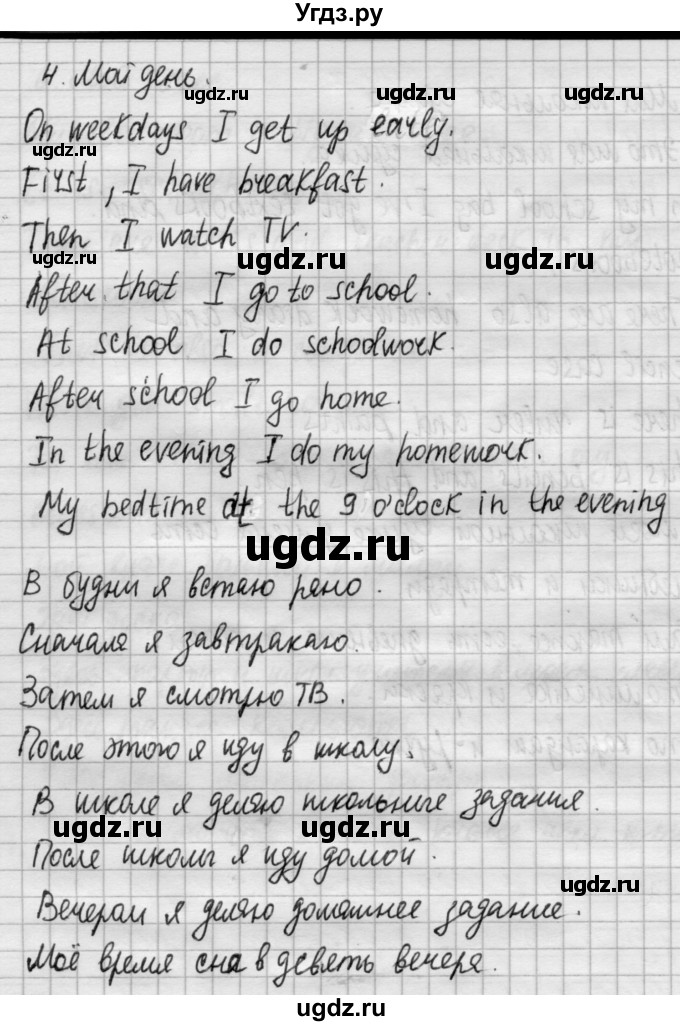 Угдз.ру
4. Мой день.
ugdz.ru ugdz.ru
On weekdays I get up early.
ugdz.ru
First, I have breakfast.
ugdz.ru
Then I watch TV.
ugdz.ru ugdz.ru
After that I go to school.
At school I do schoolwork.
After school I go home.
In the evening I do my homework.
My bedtime at the 9 o'clock in the evening
ugdz.ru
В будни я встаю рано.
Сначала я завтракаю.
Затем я смотрю ТВ.
После этого я иду в школу.
В школе я делаю школьные задания.
ugdz.ru ugdz.ru
После школы я иду домой.
ugdz.ru
Вечерам я делаю домашнее задание.
Моё время сна в девять вечера.
ugdz.ru